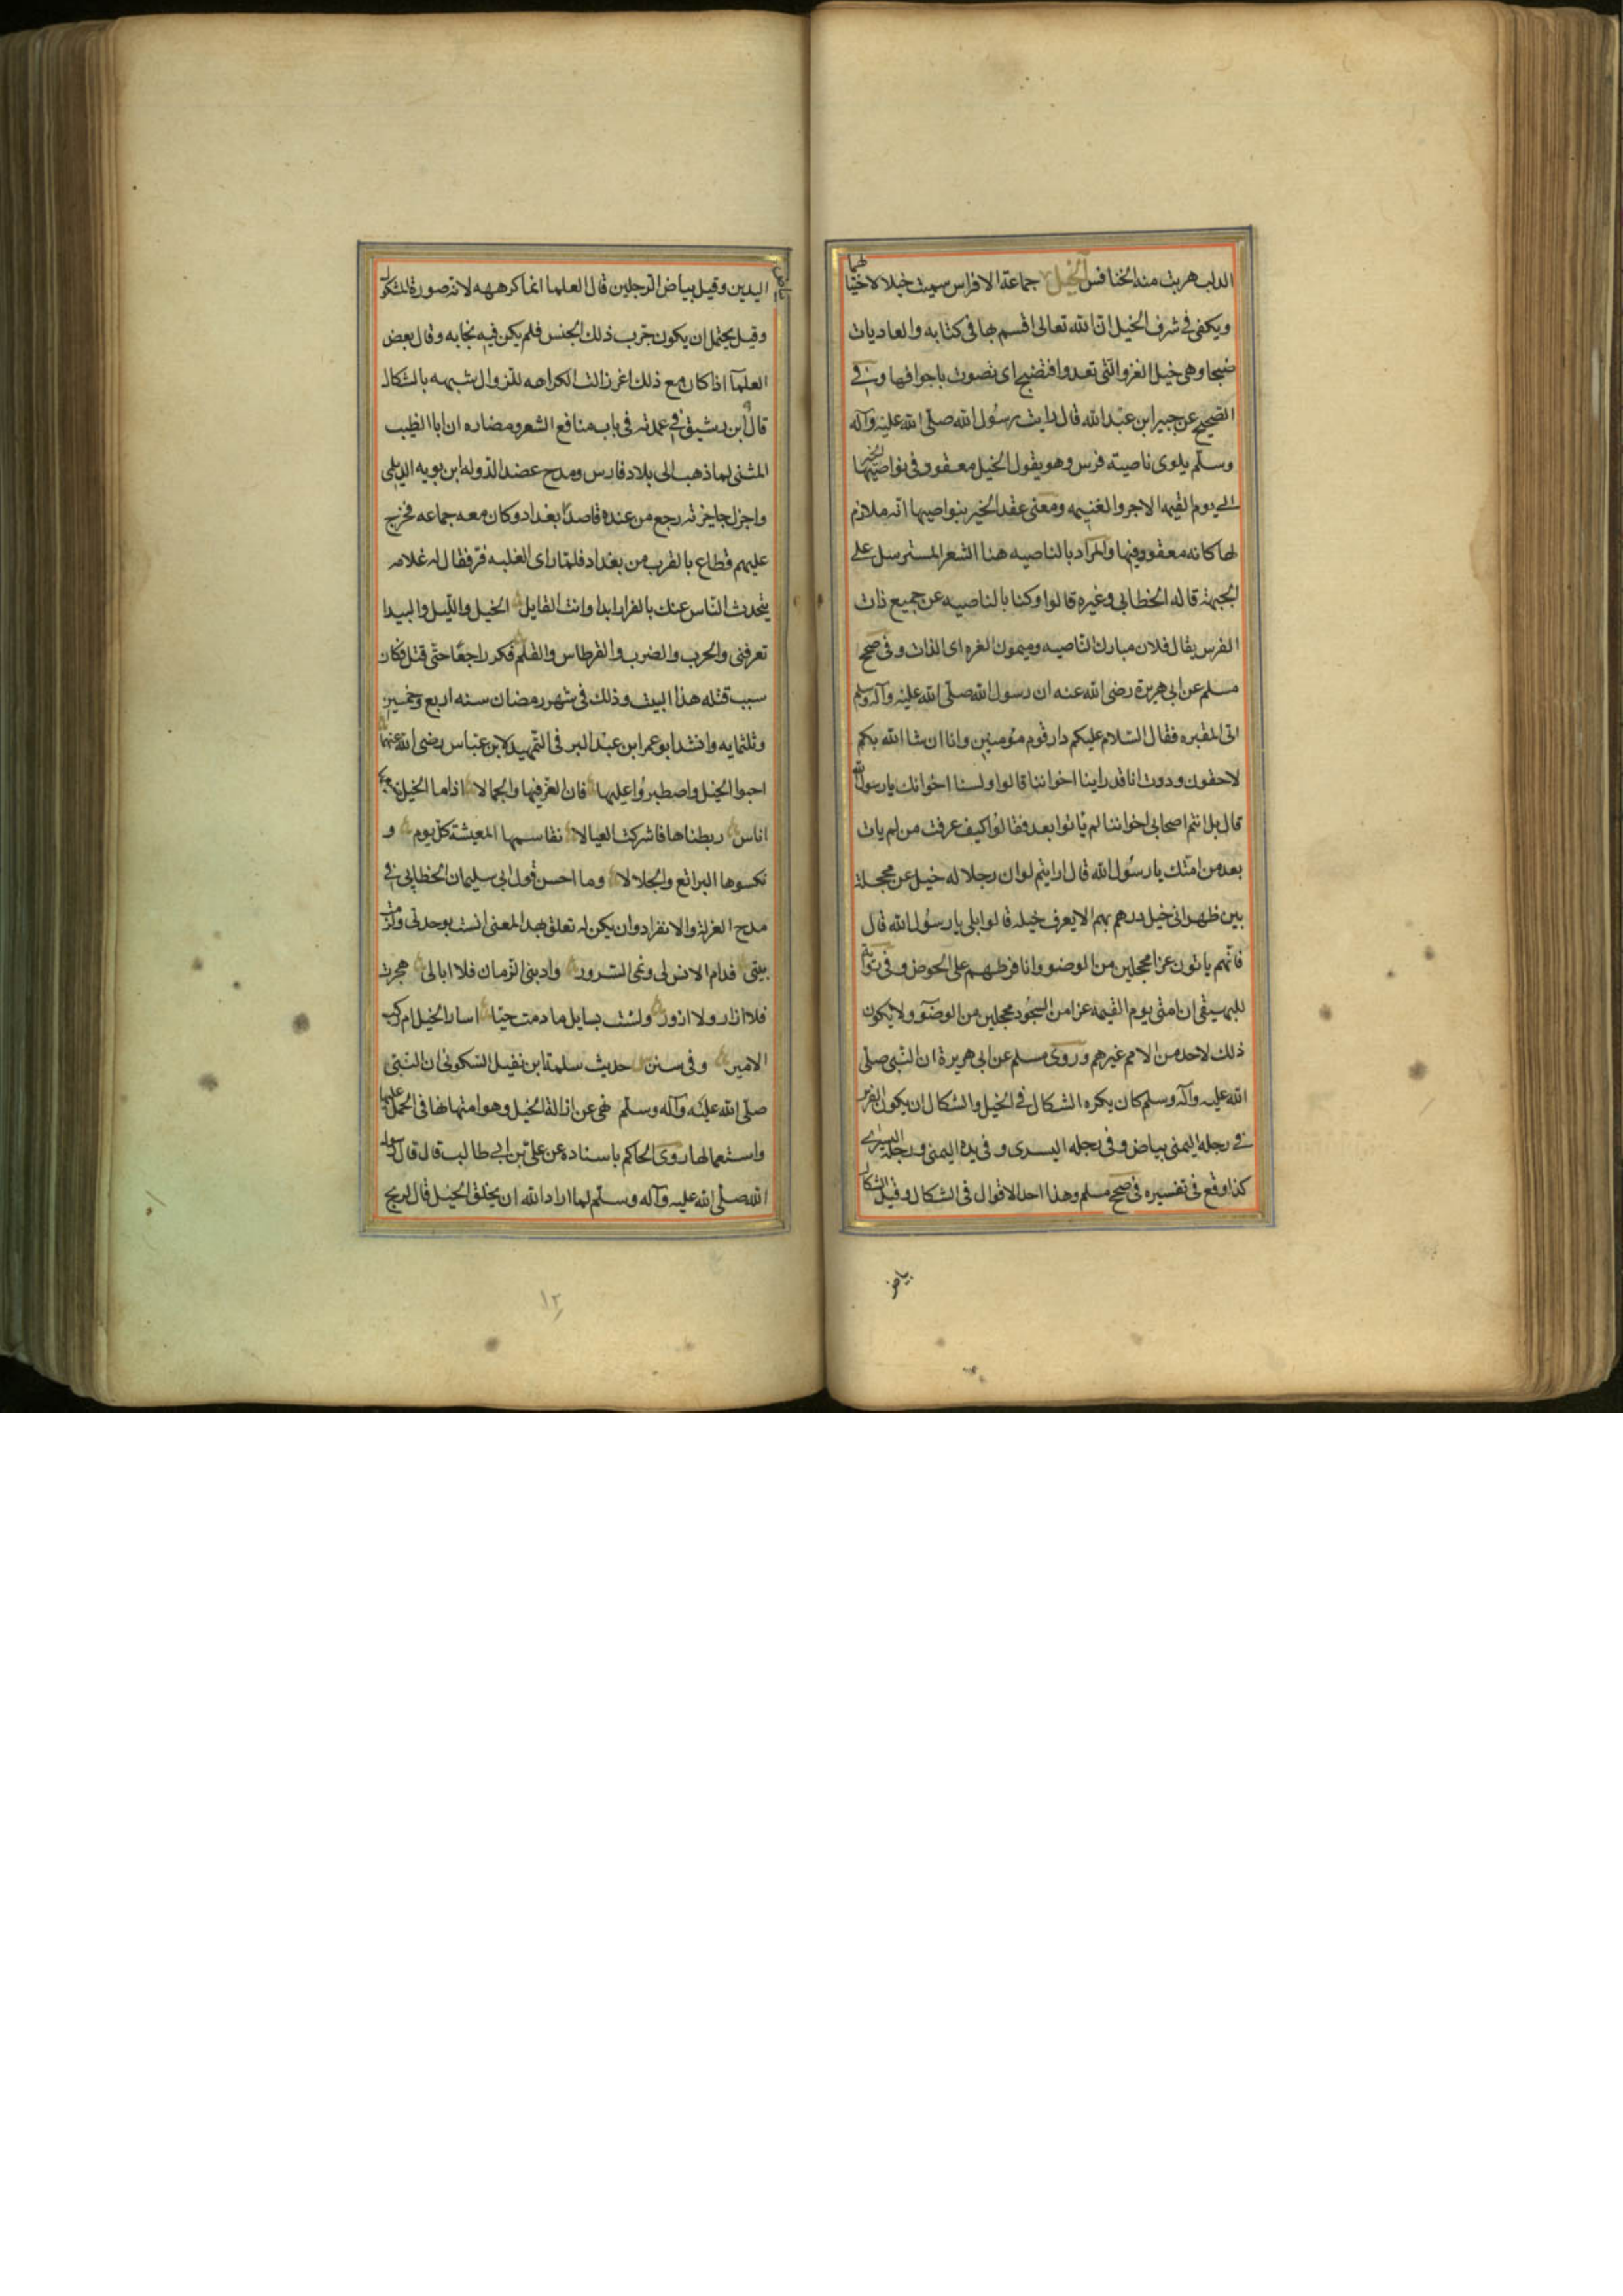 الداب هربت منه الخنافس الخيل جماعة الافراس سميت خيلا لاختيالها
ويكفى فى شرف الخيل ان الله تعالى اقسم بها فى كتابه والعاديات
ضبحا وهى خيل الغزو التى تعدوا فتضبح اى تصوت باجوافها وفى
الصحيح عن جبير ابن عبد الله قال رايت رسول الله صلى الله عليه وآله
وسلم يلوى ناصيته فرس وهو يقول الخيل معقود فى نواصيها الخير
الى يوم القيمه الاجر والغنيمه ومعنى عقد الخير بنواصيها انه ملازم
لها كانه معقود فيها والمراد بالناصيه هنا الشعر المسترسل على
الجبهة قاله الخطابى وغيره قالوا وكنا بالناصيه عن جميع ذات
الفرس يقال فلان مبارك الناصيه وميمون الغره اى الذات وفى صحيح
مسلم عن ابى هريرة رضى الله عنه ان رسول الله صلى الله عليه وآله وسلم
اتى المقبره فقال السلام عليكم دار قوم مؤمنين وانا ان شا الله بكم
لاحقون وددت انا قد راينا اخواننا قالوا ولسنا اخوانك يا رسول الله
قال بل انتم اصحابى اخواننا لم ياتوا بعد فقالوا كيف عرفت من لم يات
بعد من امتك يا رسول الله قال ارايتم لو ان رجلا له خيل غر محجلة
بين ظهرانى خيل دهم بهم الا يعرف خيله قالوا بلى يا رسول الله قال
فانهم ياتون غرا محجلين من الوضو وانا فرطهم على الحوض وفى رواية
للبيهقى ان امتى يوم القيمه غرا من السجود محجلين من الوضؤ ولا يكون
ذلك لاحد من الامم غيرهم وروى مسلم عن ابى هريرة ان النبى صلى
الله عليه وآله وسلم كان يكره الشكال فى الخيل والشكال ان يكون الفرس
فى رجله اليمنى بياض وفى رجله اليسرى وفى يده اليمنى ورجله اليسرى
كذا وقع فى تفسيره فى صحيح مسلم وهذا احد الاقوال فى الشكال وقيل الشكال
بياض
بياض
اليدين وقيل بياض الرجلين قال العلما انما كرهه لانه صورة المشكول
وقيل يحتمل ان يكون جرب ذلك الجنس فلم يكن فيه نجابه وقال بعض
العلمآ اذا كان مع ذلك اغر زالت الكراهه للزوال شبهه بالشكال
قال ابن رشيق فى عمدته فى باب منافع الشعر ومضاره ان ابا الطيب
المثنى لما ذهب الى بلاد فارس ومدح عضد الدوله ابن بويه الديلمى
واجزل جايزته رجع من عنده قاصدا بغداد وكان معه جماعه فخرج
عليهم قطاع بالقرب من بغداد فلما راى الغلبه فر فقال له غلامه
يتحدث الناس عنك بالفرار ابدا وانت القايل الخيل والليل والبيدا
تعرفنى والحرب والضرب والقرطاس والقلم فكر راجعا حتى قتل فكان
سبب قتله هذا البيت وذلك فى شهر رمضان سنه اربع وخمسين
وثلثمايه وانشد ابو عمر ابن عبد البر فى التمهيد لابن عباس رضى الله عنهما
احبوا الخيل واصطبروا عليها فان العز فيها والجمالا اذا ما الخيل ضيعها
اناس ربطناها فاشركت العيالا نقاسمها المعيشة كل يوم و
نكسوها البراقع والجلالا وما احسن قول ابى سليمان الخطابى فى
مدح العزلة والانفراد وان يكن له تعلق بهذا المعنى انست بوحدتى ولزمت
بيتى فدام الانس لى ونمى السرور وادبنى الزمان فلا ابالى هجرت
فلا ازار ولا ازور ولست بسايل ما دمت حيا اسار الخيل ام ركب
الامير وفى سنن حديث سلمة ابن نفيل السكونى ان النبى
صلى الله عليه وآله وسلم نهى عن اذالة الخيل وهو امتهانها فى الحمل عليها
واستعمالها روى الحاكم باسناده عن على بن ابى طالب قال قال رسول
الله صلى الله عليه وآله وسلم لما اراد الله ان يخلق الخيل قال لريح
١٢